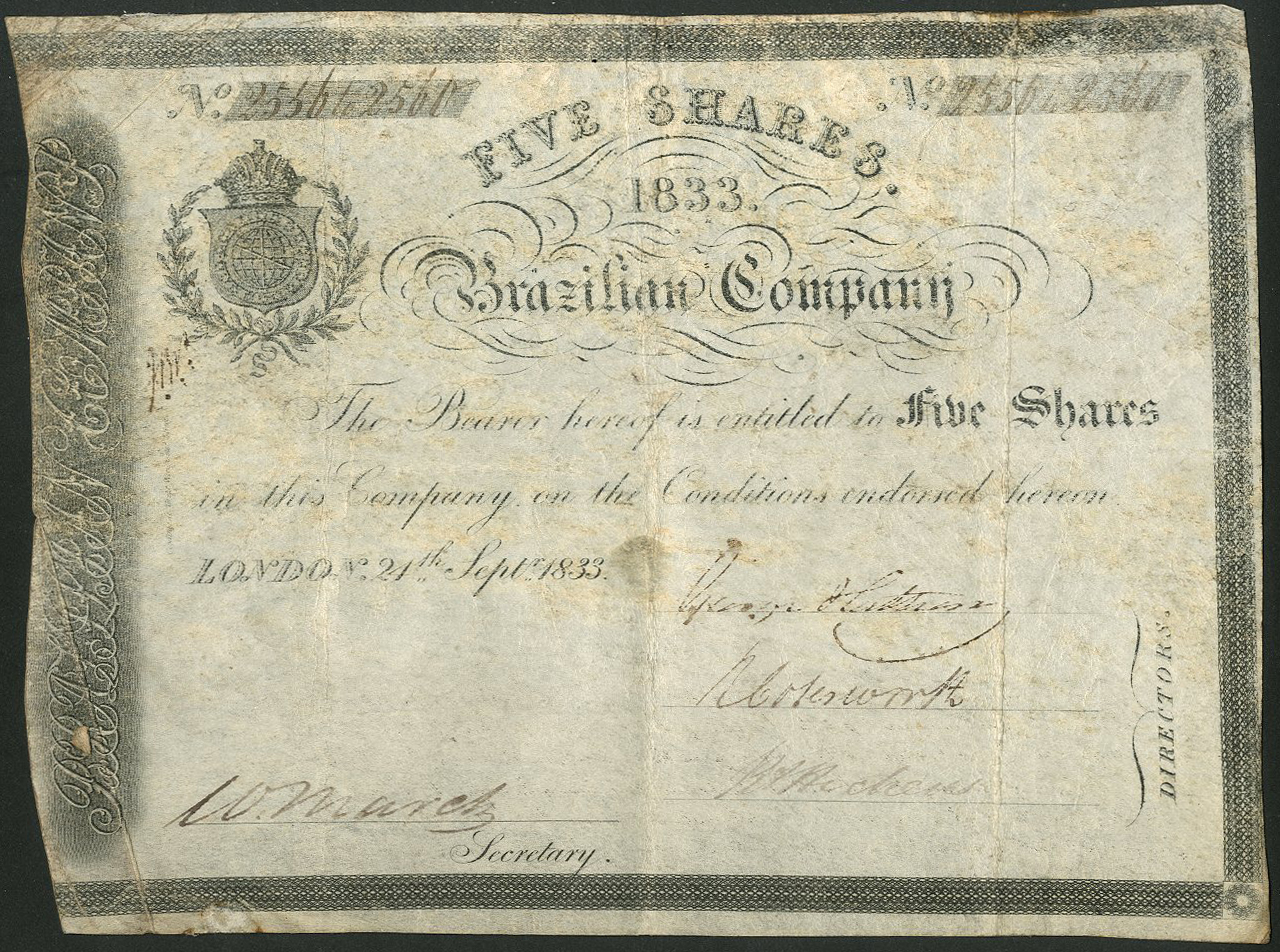 No. 2556 to 2560
No. 2556 to 2560
FIVE SHARES.
1833.
Brazilian Company
The Bearer hereof is entitled to Five Shares
in this Company, on the Conditions endorsed hereon.
LONDON. 21th Septr. 1833.
George
W. March
Secretary.
DIRECTORS.